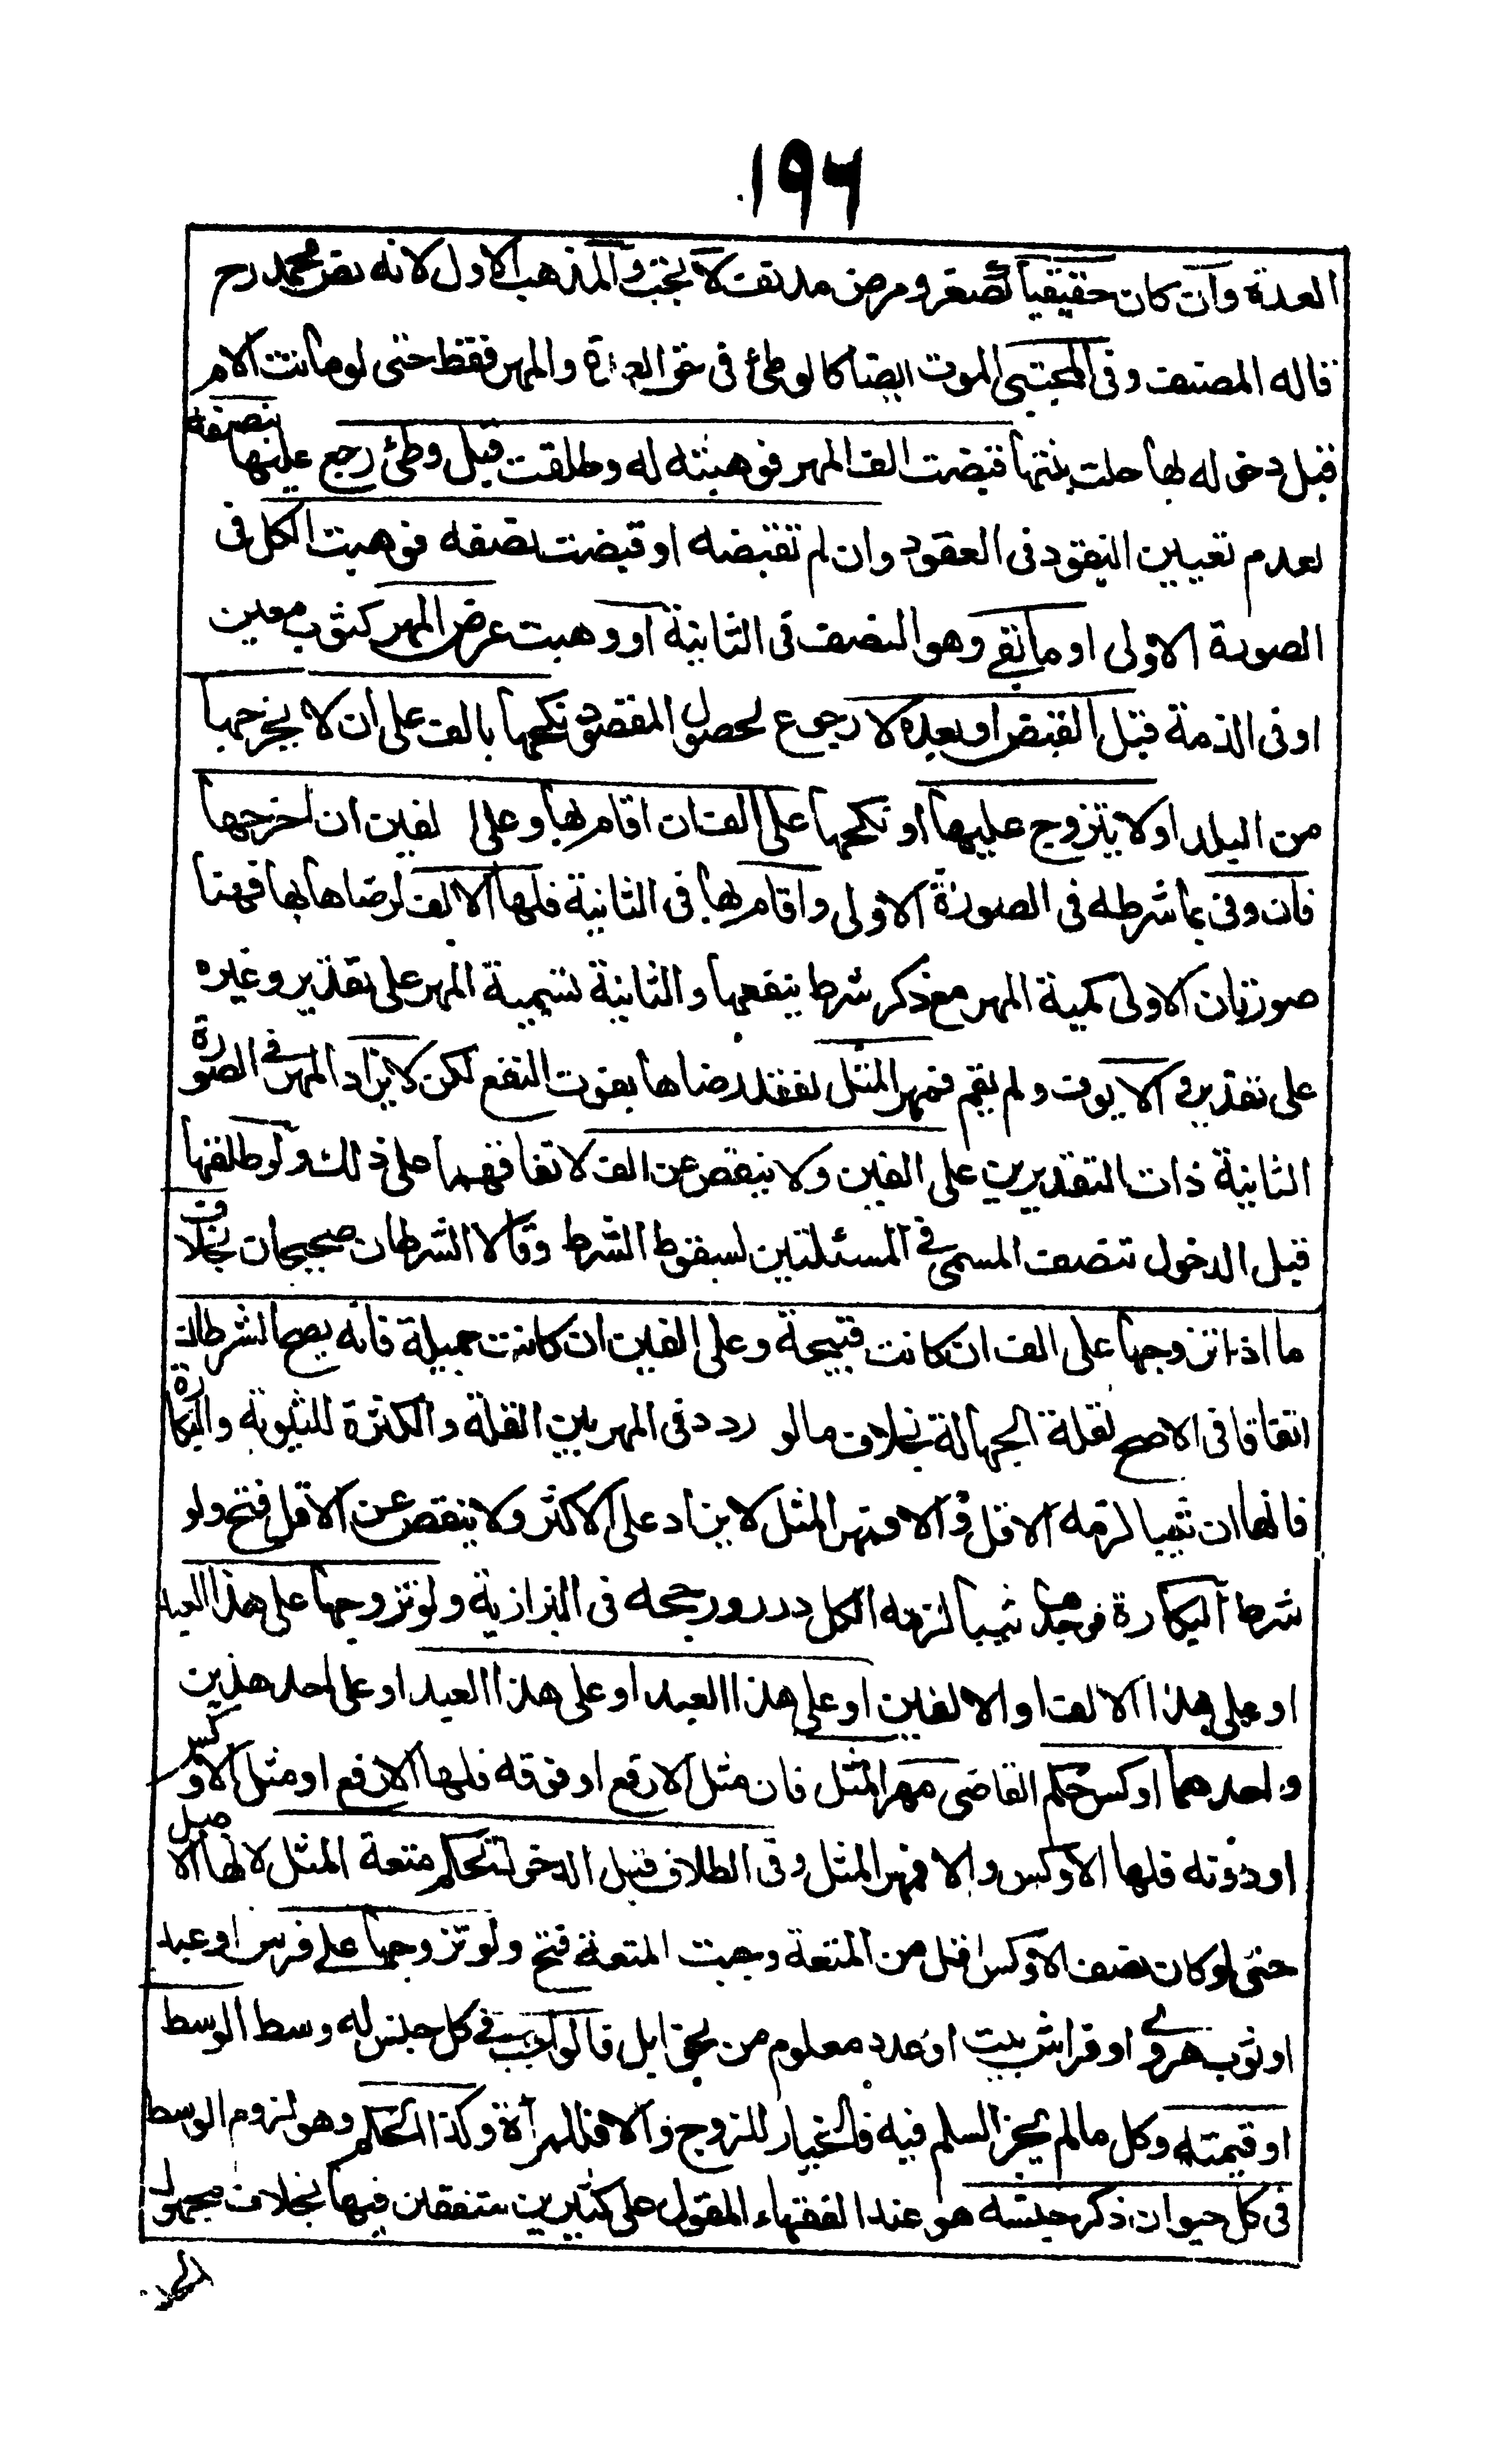 ١٩٦
العدة وان كان حقيقيا كصغر ومرض مدنف لا تجب والمذهب الاول لانه نص محمد رح
قاله المصنف وفى المجتبى الموت ايضا كالوطئ فى حق العدة والمهر فقط حتى لو ماتت الام
قبل دخوله بها حلت بنتها قبضت الف المهر فوهبته له وطلقت قبل وطئ رجع عليها بنصفه
لعدم تعيين النقود فى العقود وان لم تقبضه او قبضت نصفه فوهبت الكل فى
الصورة الاولى او ما بقى وهو النصف فى الثانية او وهبت عرض المهر كثوب معين
او فى الذمة قبل القبض او بعده لا رجوع لحصول المقصود نكحها بالف على ان لا يخرجها
من البلد او لا يتزوج عليها او نكحها على الف ان اقام بها وعلى الفين ان اخرجها
فان وفى بما شرطه فى الصورة الاولى واقام بها فى الثانية فلها الالف لرضاها بها فهنا
صورتان الاولى تسمية المهر مع ذكر شرط ينفعها والثانية تسمية المهر على تقدير وغيره
على تقدير والا يوف ولم يقم فمهر المثل لفقد رضاها بفوت النفع لكن لا يزاد المهر فى الصورة
الثانية ذات التقديرين على الفين ولا ينقص عن الف لاتفاقهما على ذلك ولو طلقها
قبل الدخول تنصف المسمى فى المسئلتين لسقوط الشرط وقالا الشرطان صحيحان بخلاف
ما اذا تزوجها على الف ان كانت قبيحة وعلى الفين ان كانت جميلة فانه يصح الشرطان
اتفاقا فى الاصح لقلة الجهالة بخلاف ما لو ردد فى المهر بين القلة والكثرة للثيوبة والبكارة
فانها ان ثيبا لزمه الاقل والا فمهر المثل لا يزاد على الاكثر ولا ينقص عن الاقل فتح ولو
شرط البكارة فوجدها ثيبا لزمه الكل درر ورجحه فى البزازية ولو تزوجها على هذا العبد
او على هذا الالف او الالفين او على هذا العبد او على هذا العبد او على احد هذين
واحدهما اوكس حكم القاضى مهر المثل فان مثل الارفع او فوقه فلها الارفع او مثل الاوكس
او دونه فلها الاوكس والا فمهر المثل وفى الطلاق قبل الدخول تحكم متعة المثل لانها الاصل
حتى لو كان نصف الاوكس اقل من المتعة وجبت المتعة فتح ولو تزوجها على فرس او عبد
او ثوب هروى او فراش بيت او عدد معلوم من نحو ابل فالواجب فى كل جنس له وسط الوسط
او قيمته وكل ما لم يجز السلم فيه فالخيار للزوج والا فللمرأة وكذا الحكم وهو لزوم الوسط
فى كل حيوان ذكر جنسه هو عند الفقهاء المقول على كثيرين متفقين فيها بخلاف مجهول